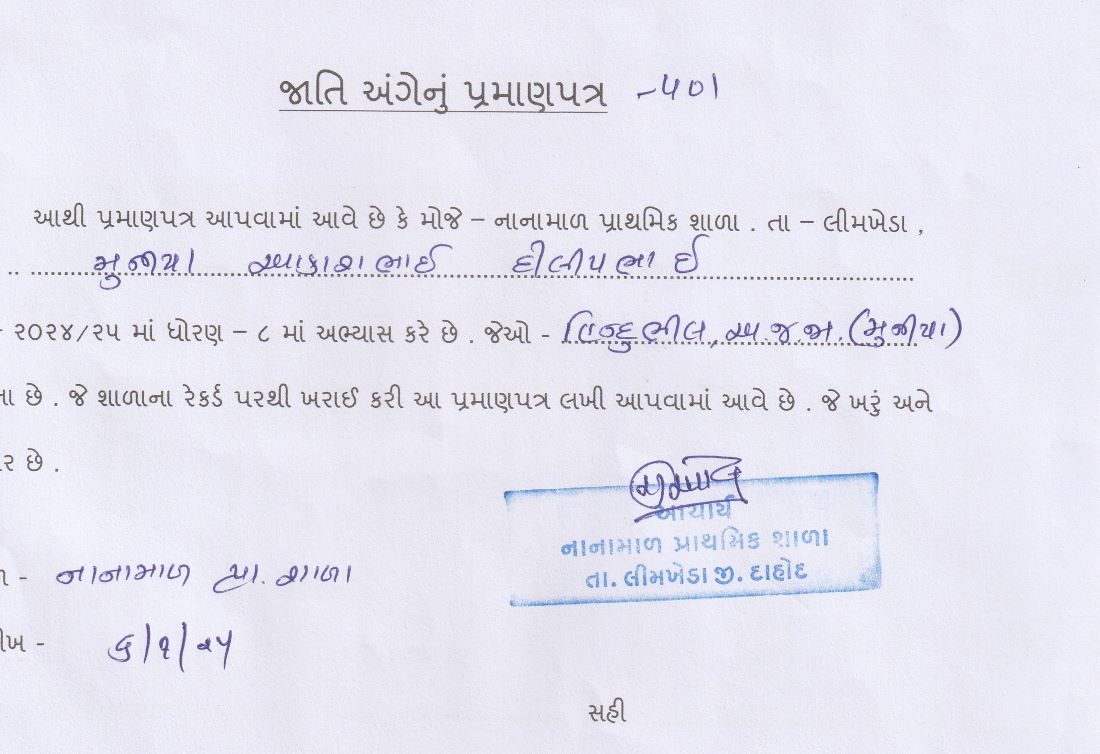 જાતિ અંગેનું પ્રમાણપત્ર -૫૦૧
આથી પ્રમાણપત્ર આપવામાં આવે છે કે મોજે – નાનામાળ પ્રાથમિક શાળા . તા – લીમખેડા ,
મુનીયા આકાશભાઈ દીલીપભાઈ
- ૨૦૨૪/૨૫ માં ધોરણ – ૮ માં અભ્યાસ કરે છે . જેઓ - હિન્દુ ભીલ, અ.જ.જા. (મુનીયા)
ના છે . જે શાળાના રેકર્ડ પરથી ખરાઈ કરી આ પ્રમાણપત્ર લખી આપવામાં આવે છે . જે ખરું અને
ર છે .
આચાર્ય
નાનામાળ પ્રાથમિક શાળા
તા. લીમખેડા જી. દાહોદ
ળ - નાનામાળ પ્રા. શાળા
ીખ - ૬/૧/૨૫
સહી